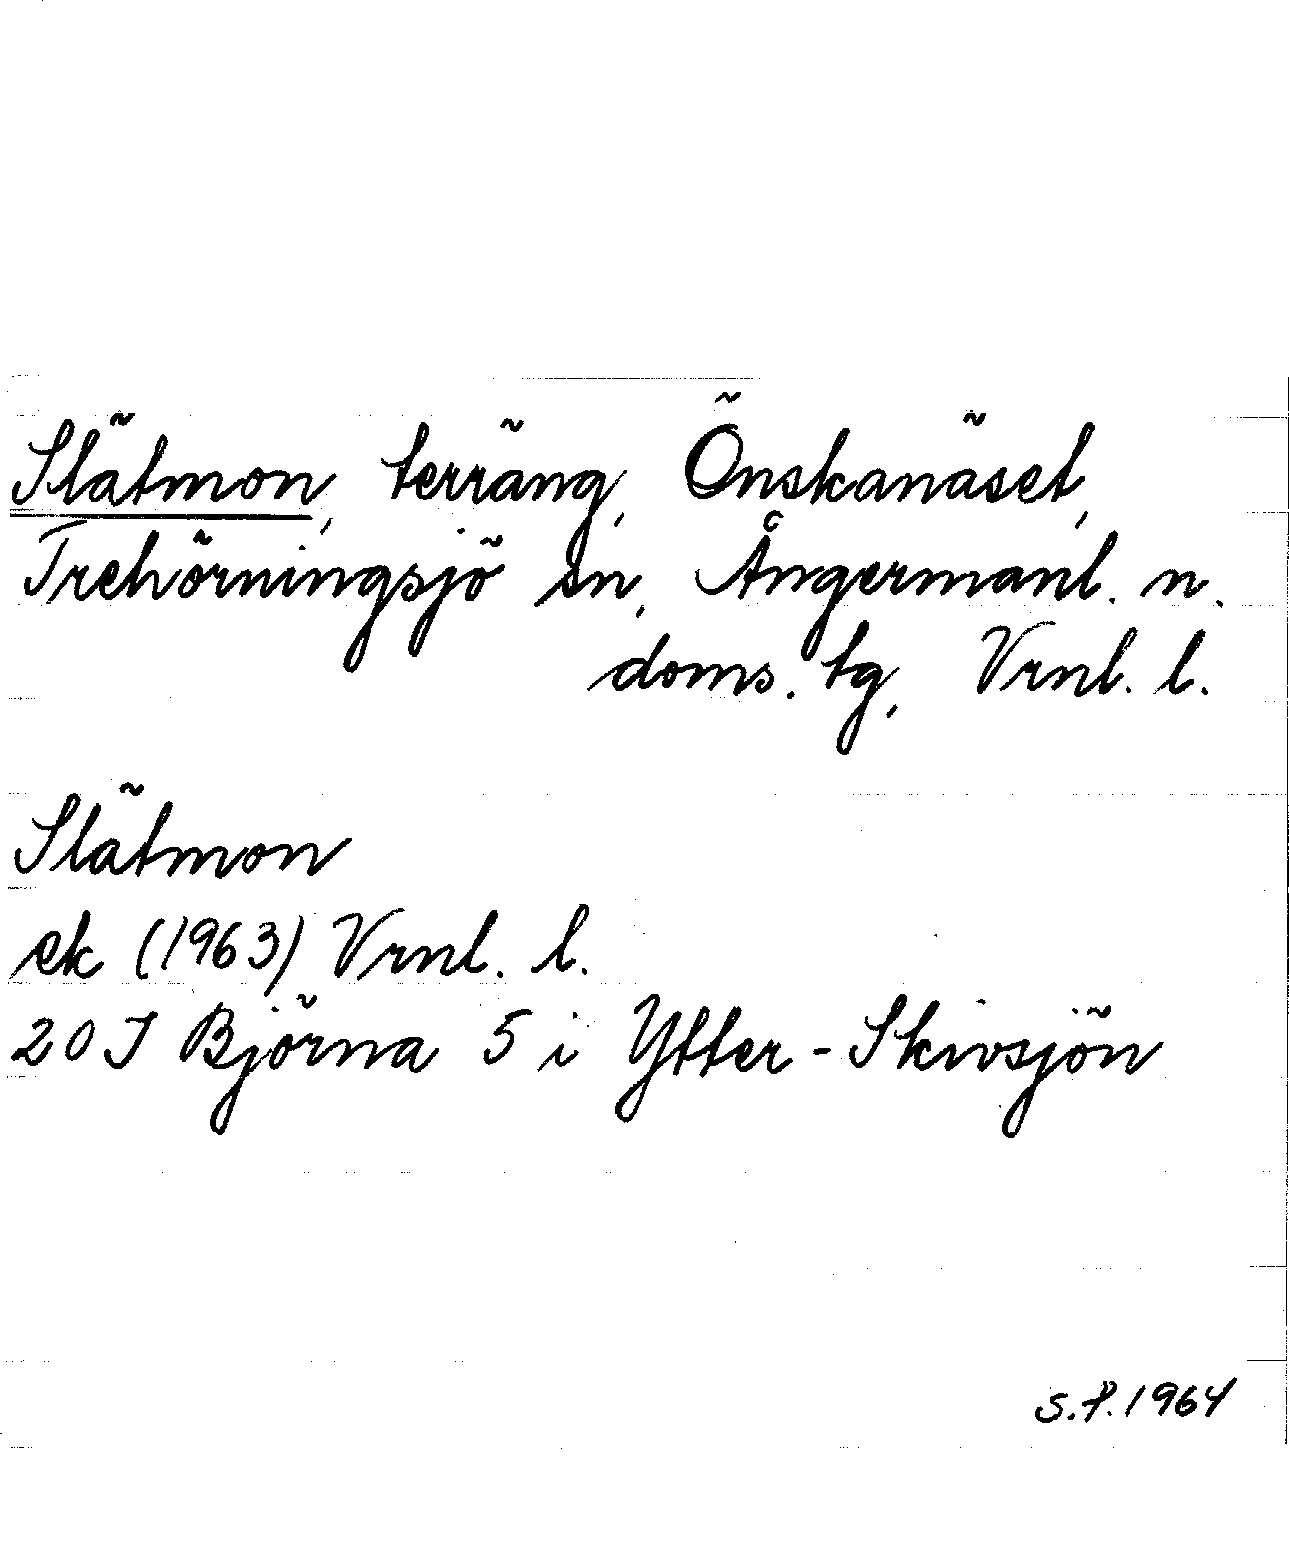 Slätmon, terräng, Önskanäset,
Trehörningsjö sn, Ångermanl. n.
doms. tg, Vrnl. l.
Slätmon
ek (1963) Vrnl. l.
20 J Björna 5 i Ytter-Skivsjön
S.P. 1964